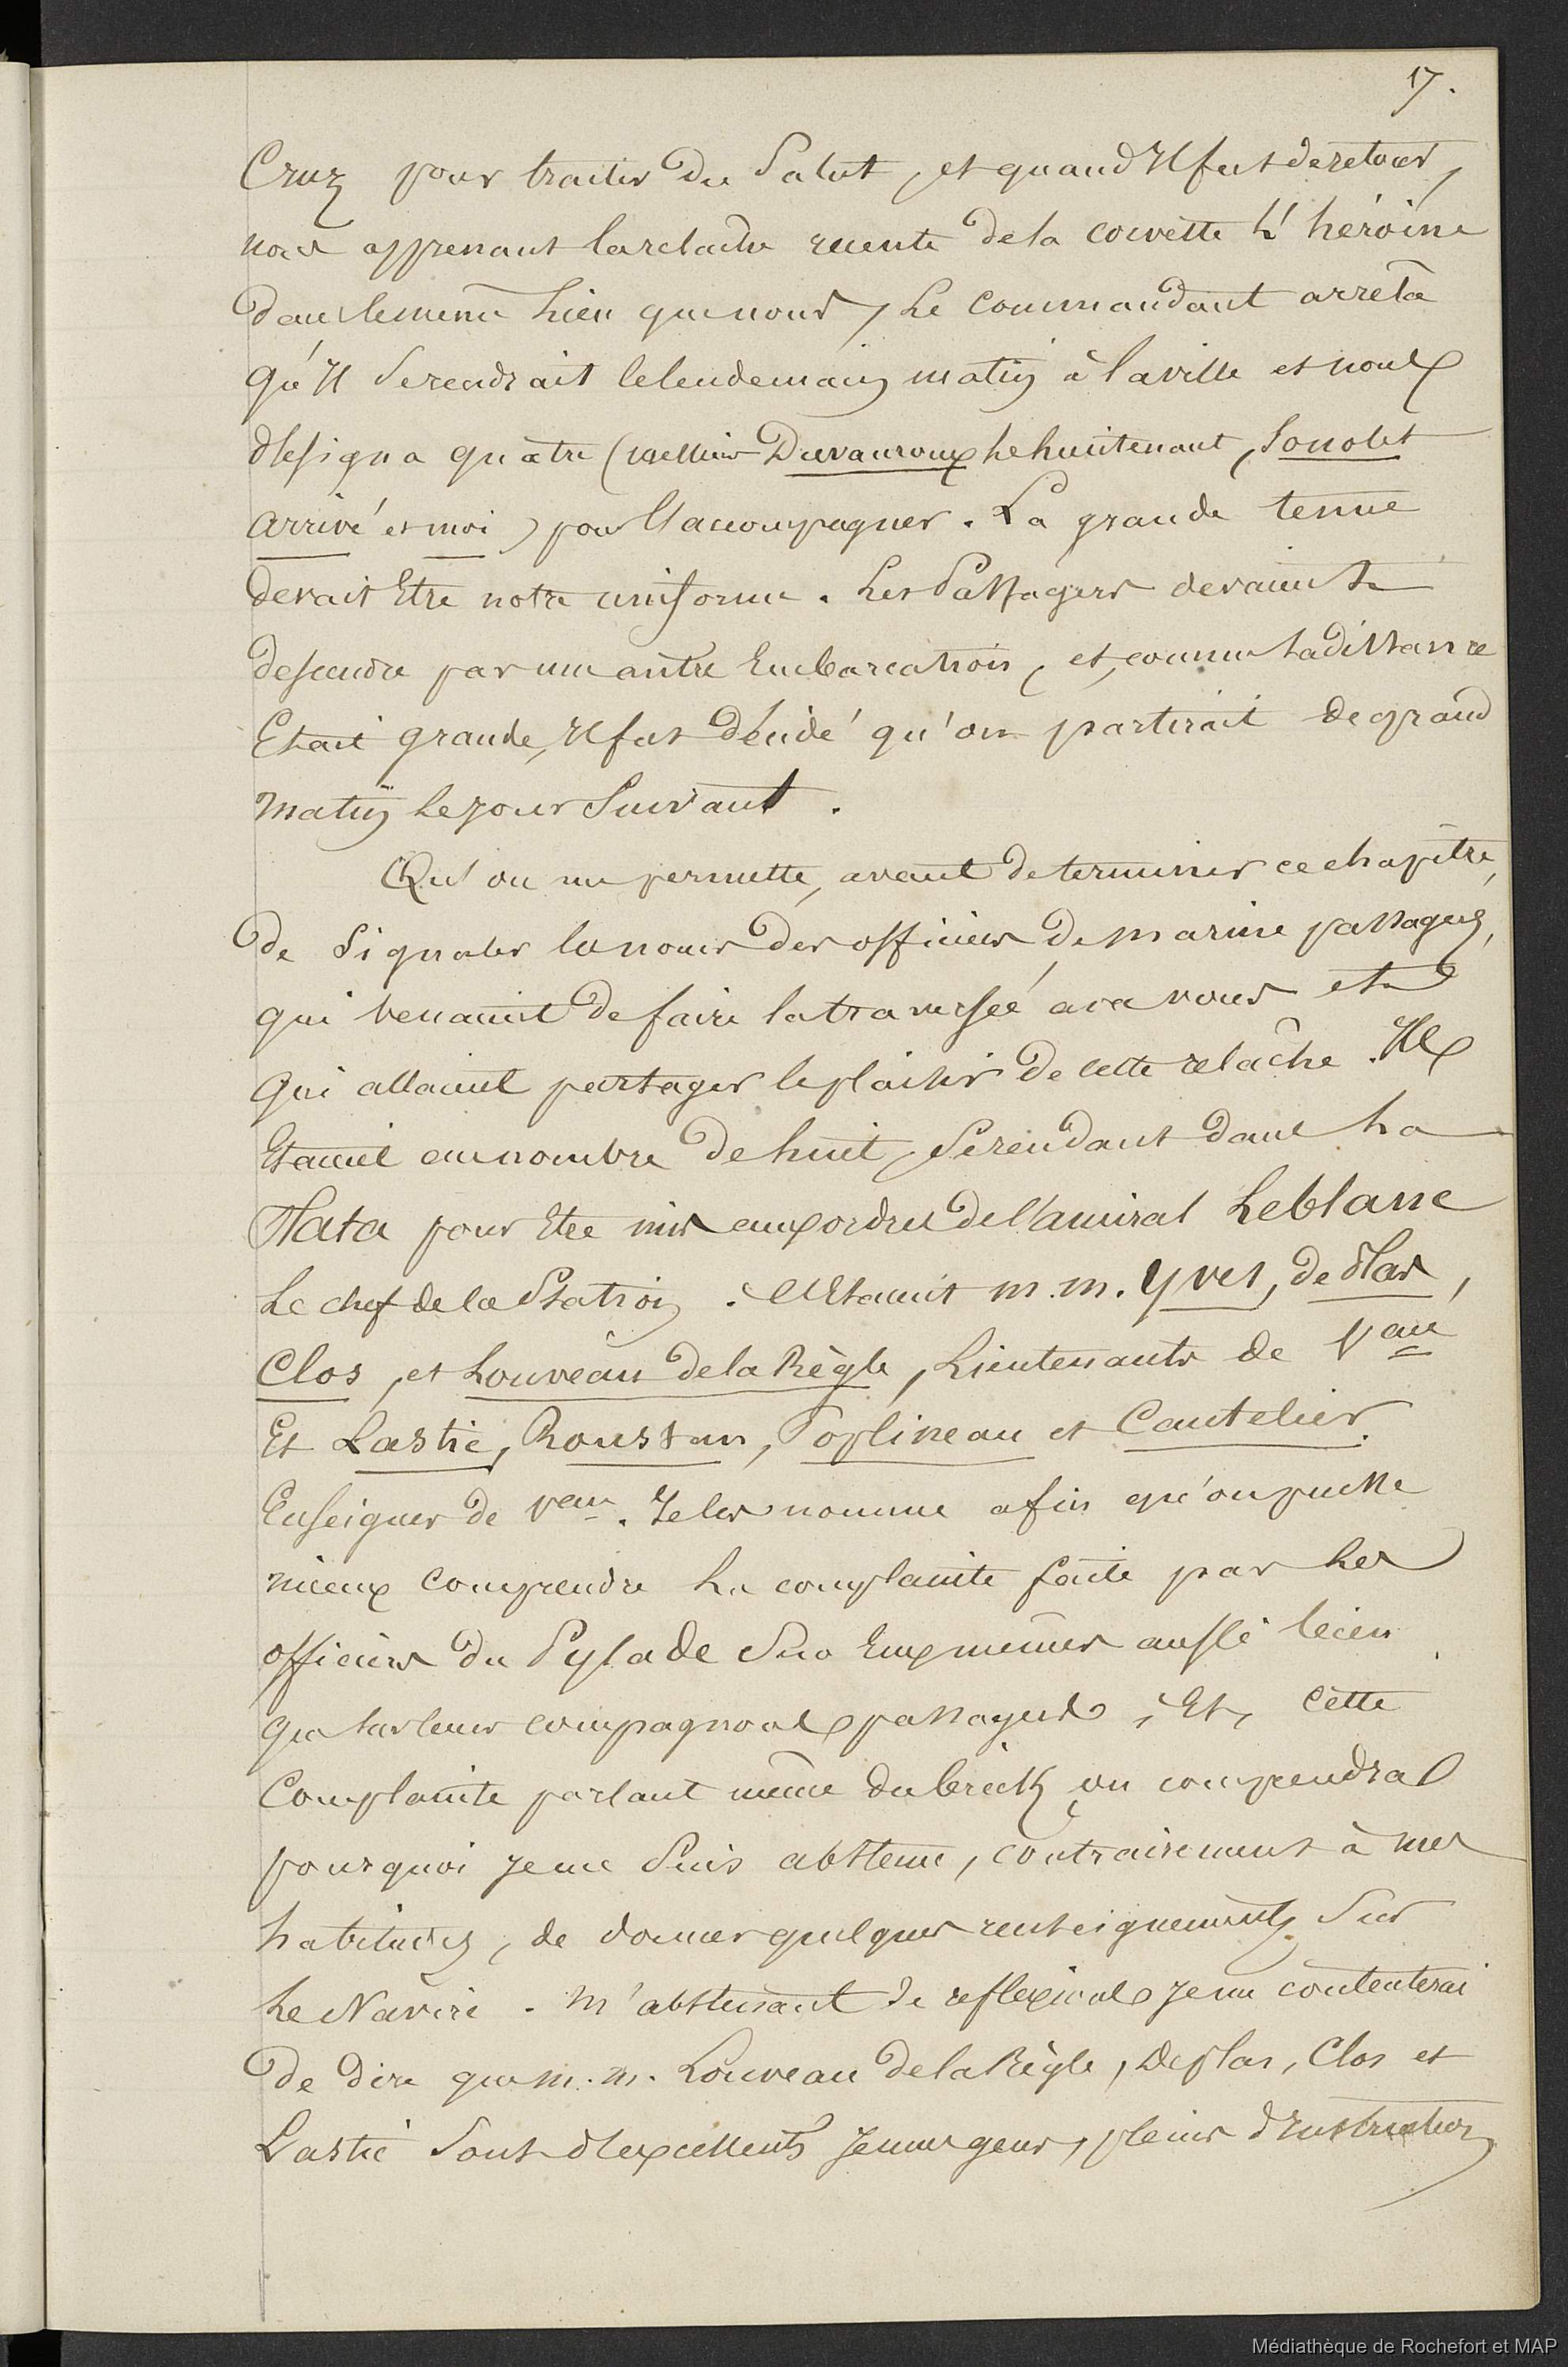 17.
Cruz pour traiter du Salut, et quand Il fut de retour,
nous apprenant la relache recente de la corvette L'héroïne
dans le meme Lieu que nous, Le Commandant arrêta
qu'Il Se rendrait le lendemain matin à la ville et nous
désigna quatre (Messieurs Duvauroux Le Lieutenant, Sonolet
arrivé et moi) pour l'accompagner. La grande tenue
devait Etre notre uniforme. Les Passagers devaient
descendre par une autre Embarcation, et, comme La distance
Etait grande, Il fut décidé qu'on partirait de grand
matin Le Jour Suivant.
Qu'on me permette, avant de terminer ce chapitre,
de Signaler les noms des officiers de marine passagers,
qui venaient de faire la traversée avec nous et
qui allaient partager le plaisir de cette relâche. Ils
Etaient au nombre de huit, Se rendant dans La
Plata pour Etre mis aux ordres de l'amiral Leblanc
Le chef de la Station. C'Etaient m.m. Yves, de Plas,
Clos, et Louveau de la Règle, Lieutenants de Vau
Et Lastic, Roustan, Poplineau et Cautelier
Enseignes de Vau. Je les nomme afin qu'on puisse
mieux comprendre La complainte faite par Les
officiers du Pylade Sur Eux mêmes aussi bien
que Sur leurs compagnons passagers; Et, Cette
Complainte parlant même du brick, on comprendra
pourquoi Je me Suis abstenu, contrairement à mes
habitudes, de donner quelques renseignements Sur
Le Navire. M'abstenant de reflexions Je me contenterai
de dire que m.m. Louveau de la Règle, De plas, Clos et
Lastic Sont d'excellents Jeunes gens, pleins d'Instruction
Médiathèque de Rochefort et MAP